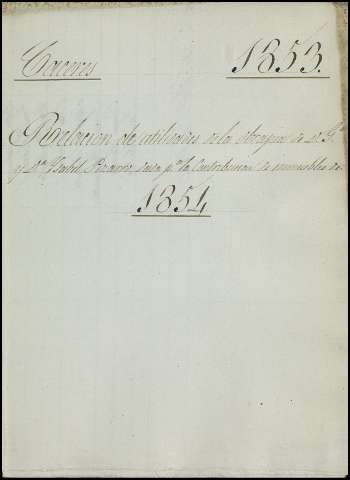 Caceres 1853.
Relacion de utilidades de la obrapia de Dn. Jn.
y Da. Ysabel Pizarro, dada pa. la Contribucion de inmuebles de
1854